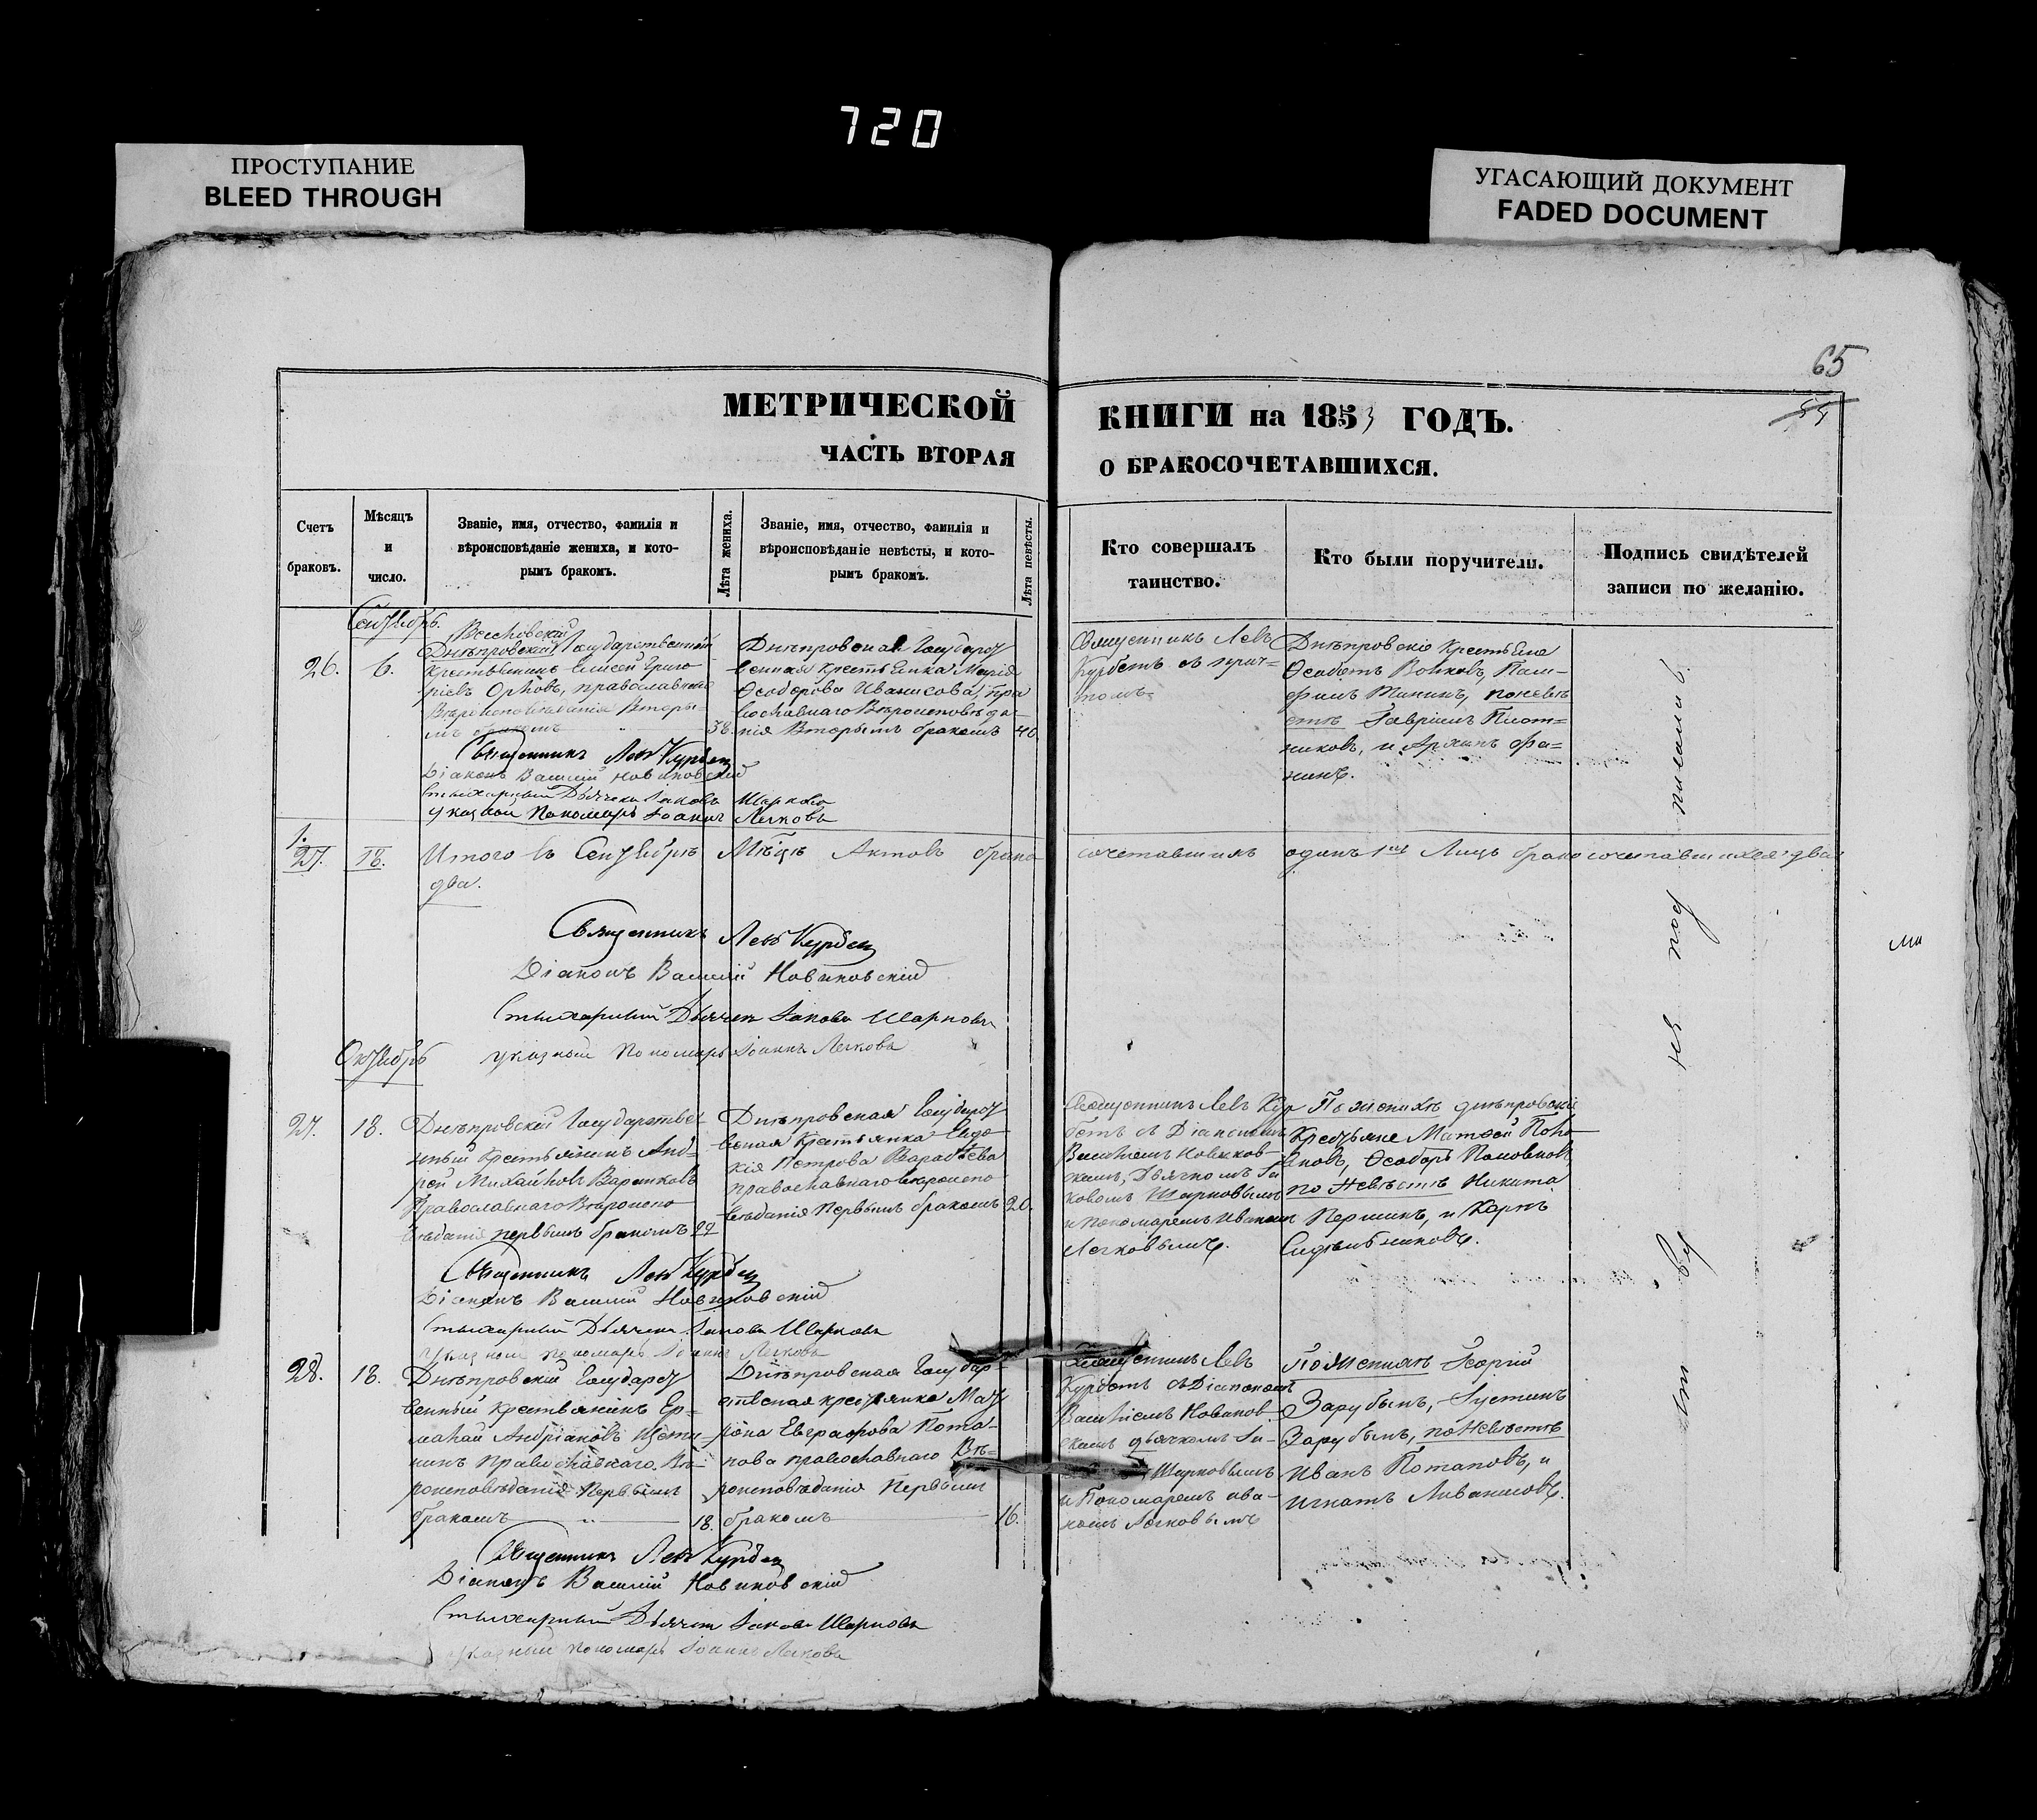 720
ПРОСТУПАНИЕ
BLEED THROUGH
УГАСАЮЩИЙ ДОКУМЕНТ
FADED DOCUMENT
65
55
МЕТРИЧЕСКОЙ КНИГИ на 1853 ГОДЪ.
ЧАСТЬ ВТОРАЯ О БРАКОСОЧЕТАВШИХСЯ.
Счетъ
браковъ.
Мѣсяцъ
и
число.
Званіе, имя, отчество, фамилія и
вѣроисповѣданіе жениха, и кото-
рымъ бракомъ.
Лѣта жениха.
Званіе, имя, отчество, фамилія и
вѣроисповѣданіе невѣсты, и кото-
рымъ бракомъ.
Лѣта невѣсты.
Кто совершалъ
таинство.
Кто были поручители.
Подпись свидѣтелей
записи по желанію.
Сентябрь.
26.
6.
Днѣпровскій Государственной
Крестьянинъ Елисей Григо
рьевъ Орловъ, православнаго
Вѣроисповѣданія Вторы-
мъ бракомъ
38.
Днѣпровская Государст
венная Крестьянка Марія
Ѳеодорова Иванисова, Пра
вославнаго Вѣроисповѣда-
нія Вторымъ бракомъ
40.
Священникъ Левъ
Курбетъ съ прич-
томъ.
Днѣпровскіе Крестьяне
Волковъ, Пам-
филъ по невѣ
стѣ Гавріилъ Плот-
никовъ, и
Священникъ Левъ Курбетъ
Діаконъ Василій Новиковскій
Стихарный Дьячекъ Іаковъ Шарковъ
указной Пономарь Іоаннъ Легковъ
1.
27.
18.
Итого въ Сентябрѣ Мѣсяцѣ Актовъ брако сочетавшихъ одинъ 1 Лицъ бракосочетавшихся два
два.
Священникъ Левъ Курбетъ
Діаконъ Василій Новиковскій
Стихарный Дьячекъ Іаковъ Шарковъ
указный Пономарь Іоаннъ Легковъ
Октябрь
27.
18.
Днѣпровскій Государствен
ный Крестьянинъ Анд-
рей Михайловъ
Православнаго Вѣроиспо
вѣданія первымъ бракомъ
22
Днѣпровская Государст
венная Крестьянка Евдо
кія Петрова Варабьева
православнаго вѣроиспо
вѣданія Первымъ бракомъ
20.
Священникъ Левъ Кур
бетъ съ Діакономъ
Василіемъ Новиков-
скимъ, Дьячкомъ Іа
ковомъ Шарковымъ
и Пономаремъ Иваномъ
Легковымъ.
По женихѣ днѣпровскіе
Крестьяне Матвей
Ѳеодоръ
по Невѣстѣ Никита
Першинъ, и Карпъ
Сидѣльниковъ.
Священникъ Левъ Курбетъ
Діаконъ Василій Новиковскій
Стихарный Дьячекъ Іаковъ Шарковъ
указной пономарь Іоаннъ Легковъ
28.
18.
Днѣпровскій Государст
венный Крестьянинъ Ер-
молай Андріановъ
нинъ Православнаго Вѣ-
роисповѣданія Первымъ
бракомъ
18.
Днѣпровская Государ-
ственная крестьянка Мат
рона Евграфова Пота-
пова православнаго Вѣ-
роисповѣданія Первымъ
бракомъ
16.
Священникъ Левъ
Курбетъ съ Діакономъ
Василіемъ Новиков
скимъ дьячкомъ Іа-
Шарковымъ
и Пономаремъ Ива-
номъ Легковымъ
По женихѣ Георгій
Зарубинъ, Іустинъ
Зарубинъ, по Невѣстѣ
Иванъ Потаповъ, и
Игнатъ Ливанисовъ.
Священникъ Левъ Курбетъ
Діаконъ Василій Новиковскій
Стихарный Дьячекъ Іаковъ Шарковъ
указный Пономарь Іоаннъ Легковъ